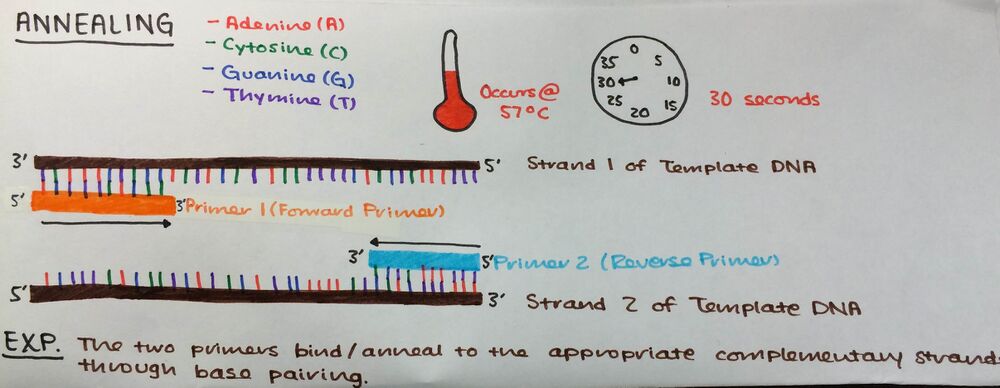 ANNEALING
- Adenine (A)
- Cytosine (C)
- Guanine (G)
- Thymine (T)
Occurs @
57°C
0
5
10
15
20
25
30
35
30 seconds
3' 5' Strand 1 of Template DNA
5' 3' Primer 1 (Forward Primer)
3' 5' Primer 2 (Reverse Primer)
5' 3' Strand 2 of Template DNA
EXP. The two primers bind/anneal to the appropriate complementary strands
through base pairing.